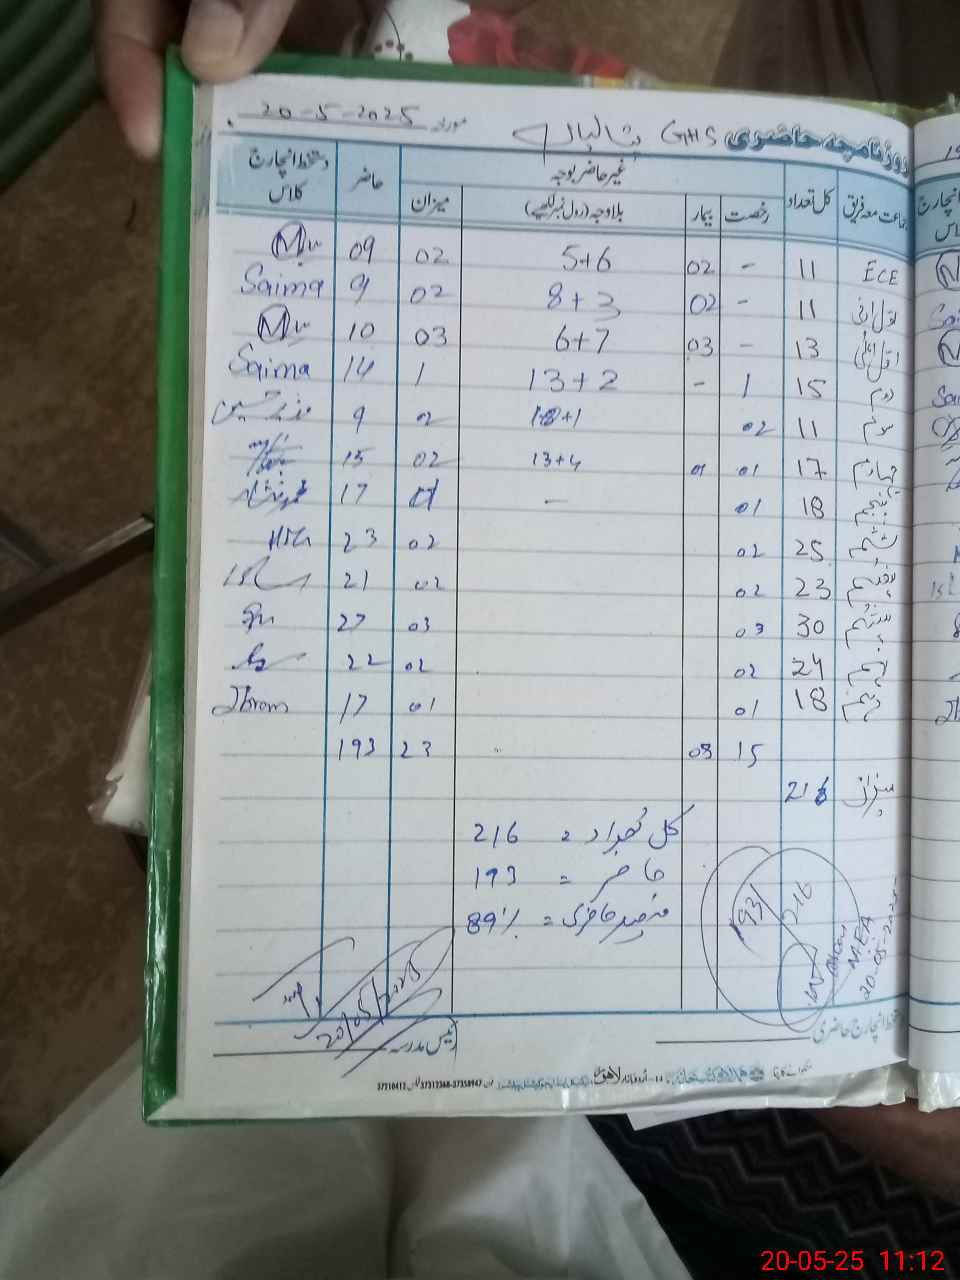 روزنامچہ حاضری GHS شالباں مورخہ 20-5-2025
جماعت معہ فریق کل تعداد غیر حاضر بوجہ حاضر دستخط انچارج کلاس
رخصت بیمار بلاوجہ (رول نمبر لکھیے) میزان
ECE 11 - 02 5+6 02 09
اول ادنیٰ 11 - 02 8+3 02 9 Saima
اول اعلیٰ 13 - 03 6+7 03 10
دوم 15 1 - 13+2 1 14 Saima
سوئم 11 02 02 9
چہارم 17 01 01 13+4 02 15
پنجم 18 01 - 17
ششم 25 02 02 23
ہفتم 23 02 02 21
ہشتم 30 03 03 27
نہم 24 02 02 22
دہم 18 01 01 17
15 08 23 193
میزان 216
کل تعداد = 216
حاضر = 193
فیصد حاضری = 89%
193/216
MEA
20-05-2025
20/05/2025
دستخط انچارج حاضری
رئیس مدرسہ
20-05-25 11:12